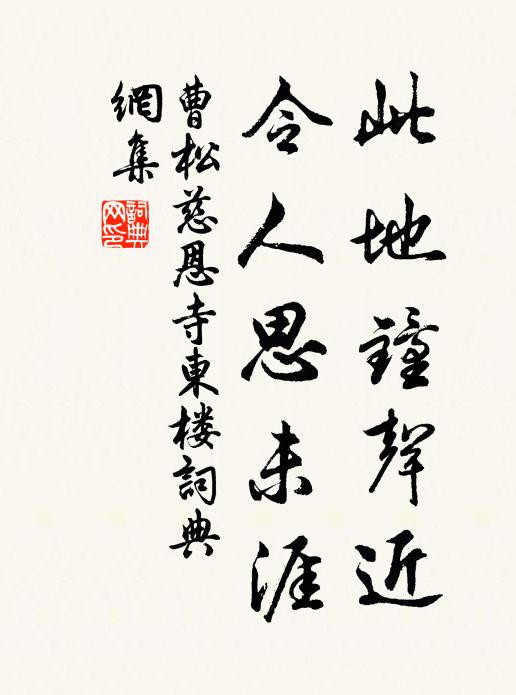 此地鐘聲近
令人思未涯
曹松慈恩寺東楼詞典
網集
詞典
网印